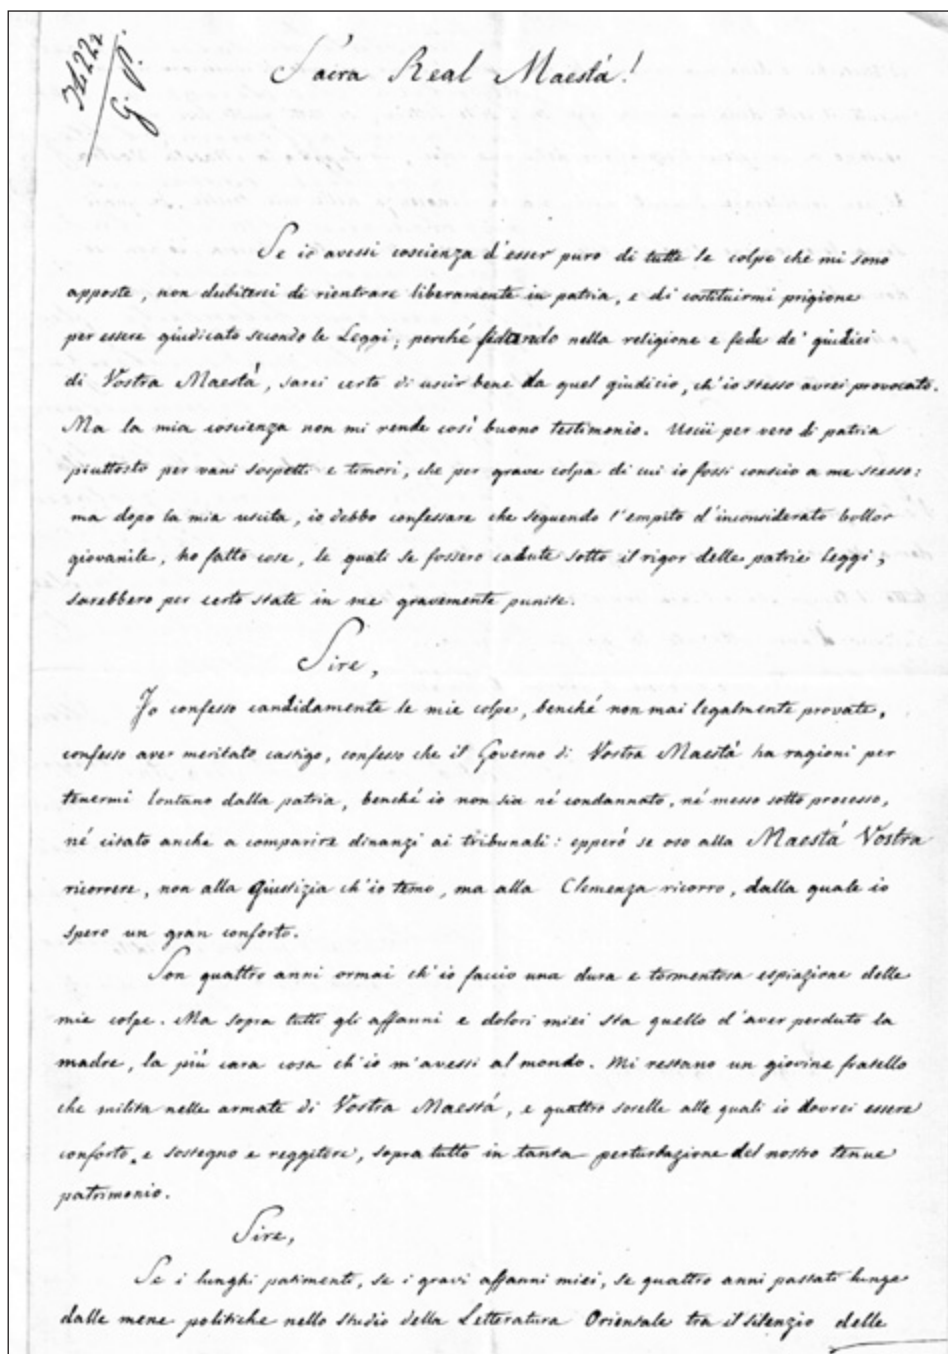 Sacra Real Maestà!
Se io avessi coscienza d'esser puro di tutte le colpe che mi sono
apposte, non dubiterei di rientrare liberamente in patria, e di costituirmi prigione
per essere giudicato secondo le Leggi; perché fidando nella religione e fede de' giudici
di Vostra Maestà, sarei certo di uscir bene da quel giudicio, ch'io stesso avrei provocato.
Ma la mia coscienza non mi rende così buono testimonio. Uscii per vero di patria
piuttosto per vani sospetti e timori, che per grave colpa di cui io fossi conscio a me stesso:
ma dopo la mia uscita, io debbo confessare che seguendo l'empito d'inconsiderato bollor
giovanile, ho fatto cose, le quali se fossero cadute sotto il rigor delle patrie Leggi;
sarebbero per certo state in me gravemente punite.
Sire,
Io confesso candidamente le mie colpe, benché non mai legalmente provate,
confesso aver meritato castigo, confesso che il Governo di Vostra Maestà ha ragioni per
tenermi lontano dalla patria, benché io non sia né condannato, né messo sotto processo,
né citato anche a comparire dinanzi ai tribunali: epperò se oso alla Maestà Vostra
ricorrere, non alla Giustizia ch'io temo, ma alla Clemenza ricorro, dalla quale io
spero un gran conforto.
Son quattro anni ormai ch'io faccio una dura e tormentosa espiazione delle
mie colpe. Ma sopra tutti gli affanni e dolori miei sta quello d'aver perduto la
madre, la più cara cosa ch'io m'avessi al mondo. Mi restano un giovine fratello
che milita nelle armate di Vostra Maestà, e quattro sorelle alle quali io dovrei essere
conforto, e sostegno e reggitore, sopra tutto in tanta perturbazione del nostro tenue
patrimonio.
Sire,
Se i lunghi patimenti, se i gravi affanni miei, se quattro anni passati lunge
dalle mene politiche nello studio della Letteratura Orientale tra il silenzio delle